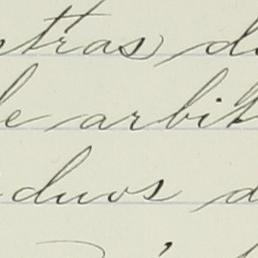 tras d
le arbit
duos d